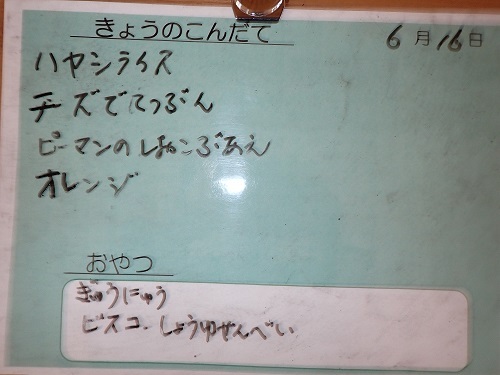 きょうのこんだて 6月16日
ハヤシライス
チーズでてつぶん
ピーマンのしおこぶあえ
オレンジ
おやつ
ぎゅうにゅう
ビスコ．しょうゆせんべい